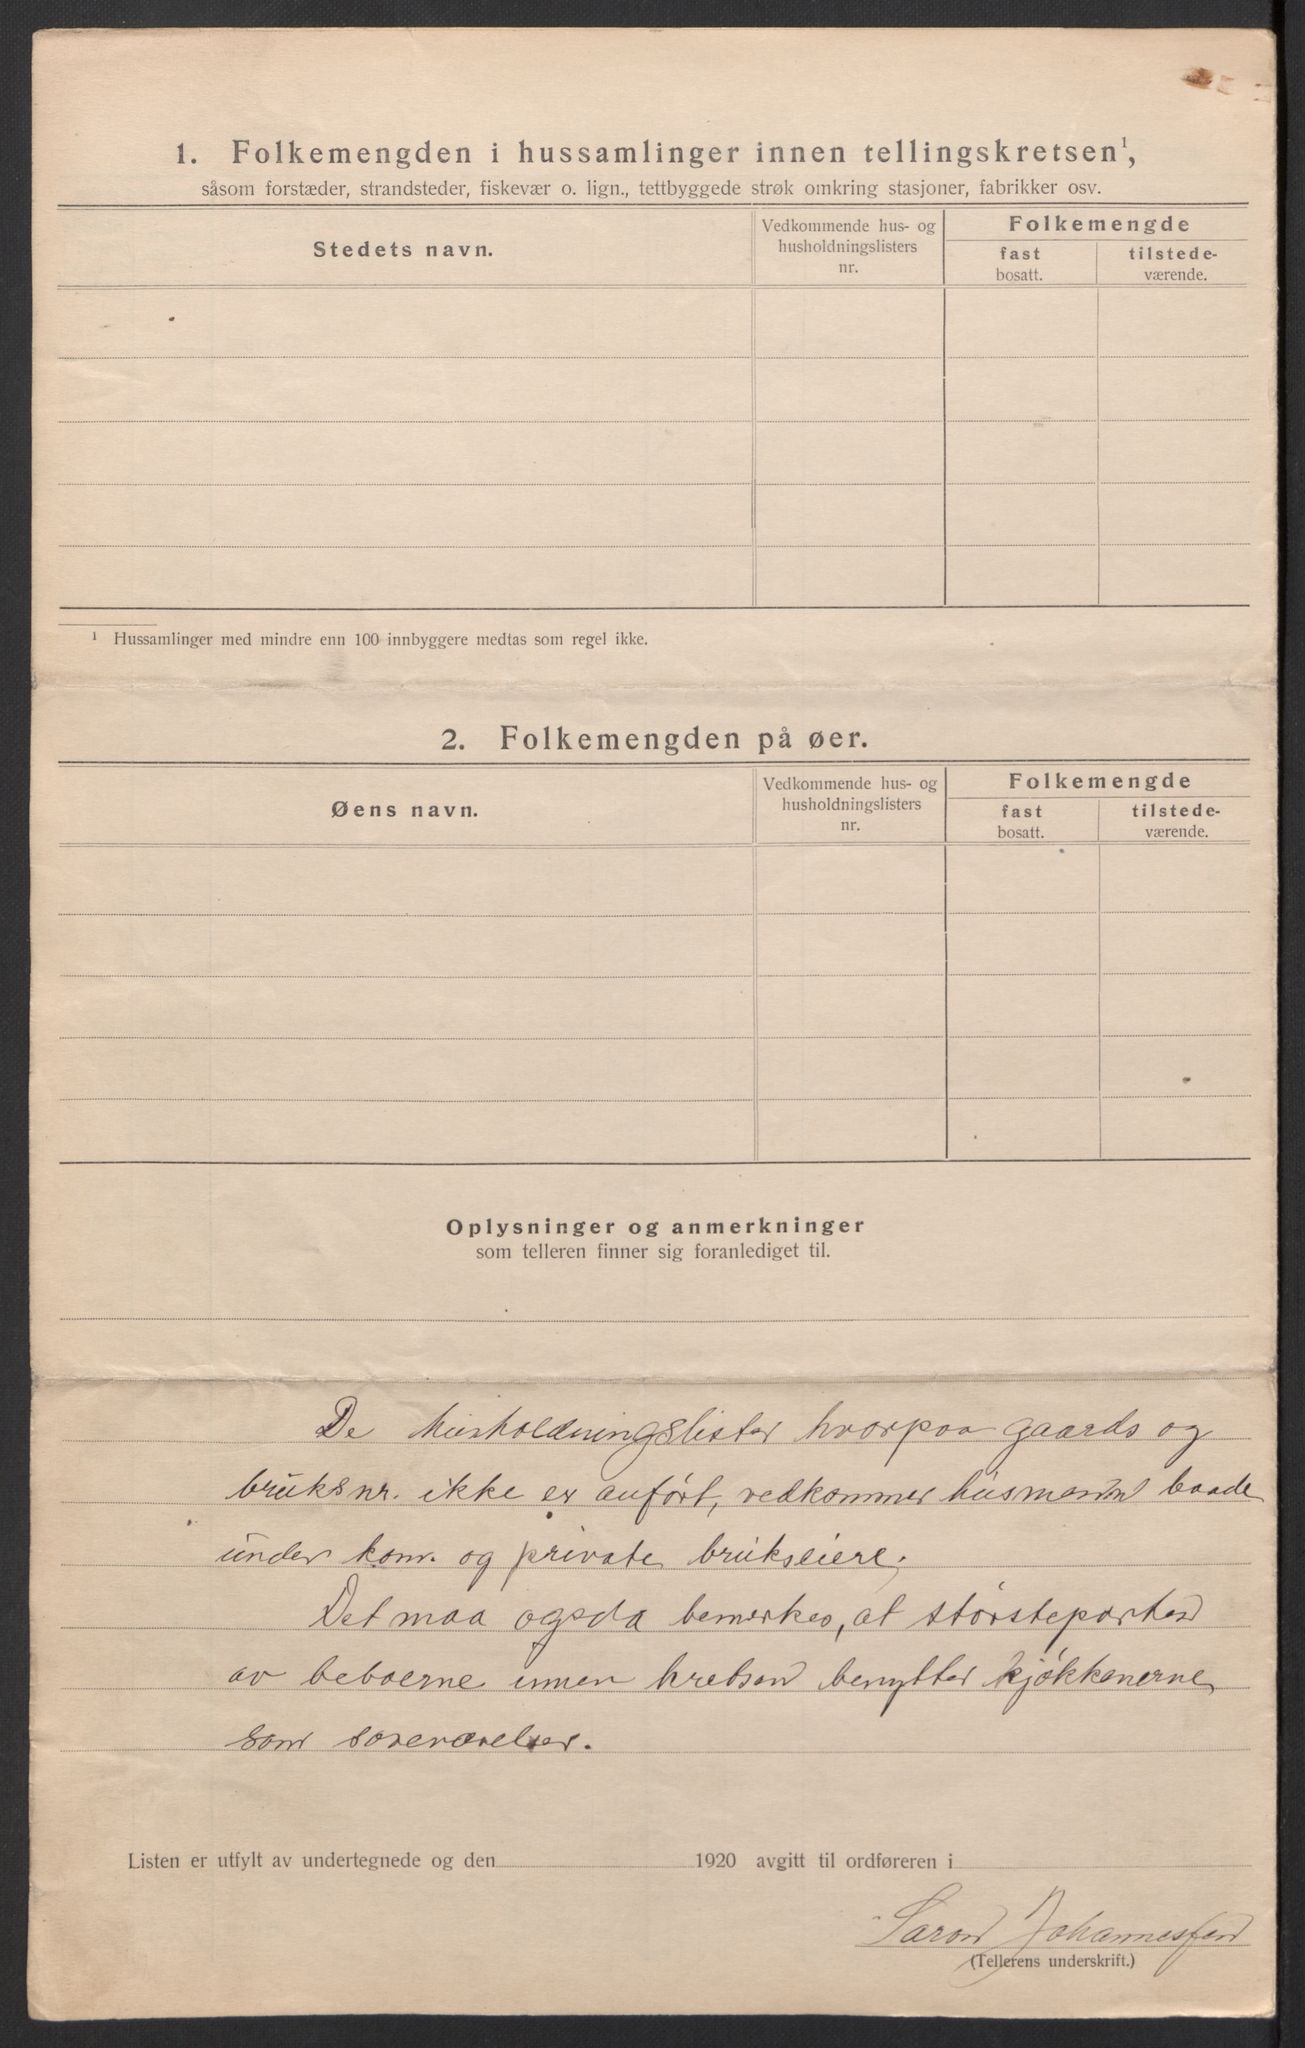 1. Folkemengden i hussamlinger innen tellingskretsen¹,
såsom forstæder, strandsteder, fiskevær o. lign., tettbyggede strøk omkring stasjoner, fabrikker osv.
Stedets navn.
Vedkommende hus- og
husholdningslisters
nr.
Folkemengde
fast
bosatt.
tilstede-
værende.
¹ Hussamlinger med mindre enn 100 innbyggere medtas som regel ikke.
2. Folkemengden på øer.
Øens navn.
Vedkommende hus- og
husholdningslisters
nr.
Folkemengde
fast
bosatt.
tilstede-
værende.
Oplysninger og anmerkninger
som telleren finner sig foranlediget til.
De husholdningslister hvorpaa gaards og
bruksnr. ikke er anført, vedkommer husmænd baade
under kom. og private brukseiere.
Det maa ogsaa bemerkes, at størsteparten
av beboerne innen kretsen benytter kjøkkenerne
som soveværelser.
Listen er utfylt av undertegnede og den 1920 avgitt til ordføreren i
Saron Johannessen
(Tellerens underskrift.)